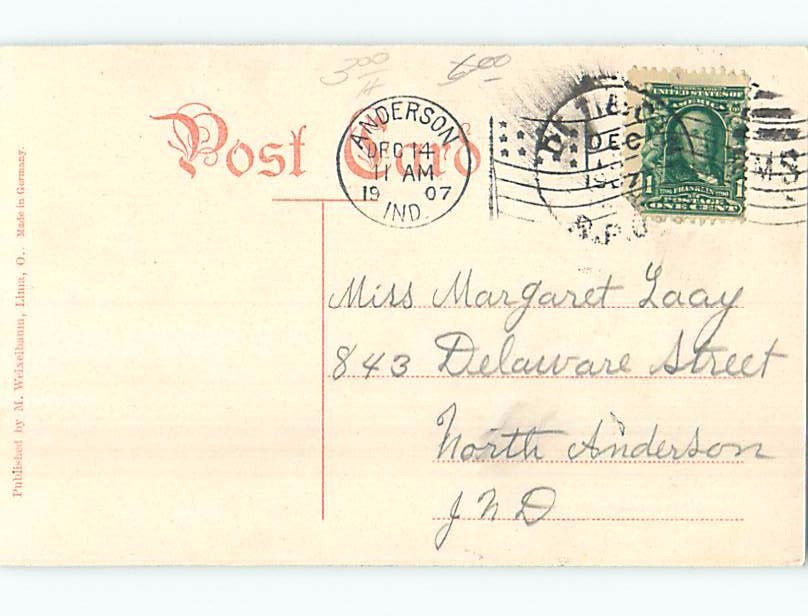 3 00
6 00
Post Card
ANDERSON
DEC 14
11 AM
19 07
IND.
DEC
1907
R.P.O.
MS
UNITED STATES OF
AMERICA
1 FRANKLIN 1
POSTAGE
ONE CENT
Miss Margaret Laay
843 Delaware Street
North Anderson
IND
Published by M. Weixelbaum, Lima, O. Made in Germany.